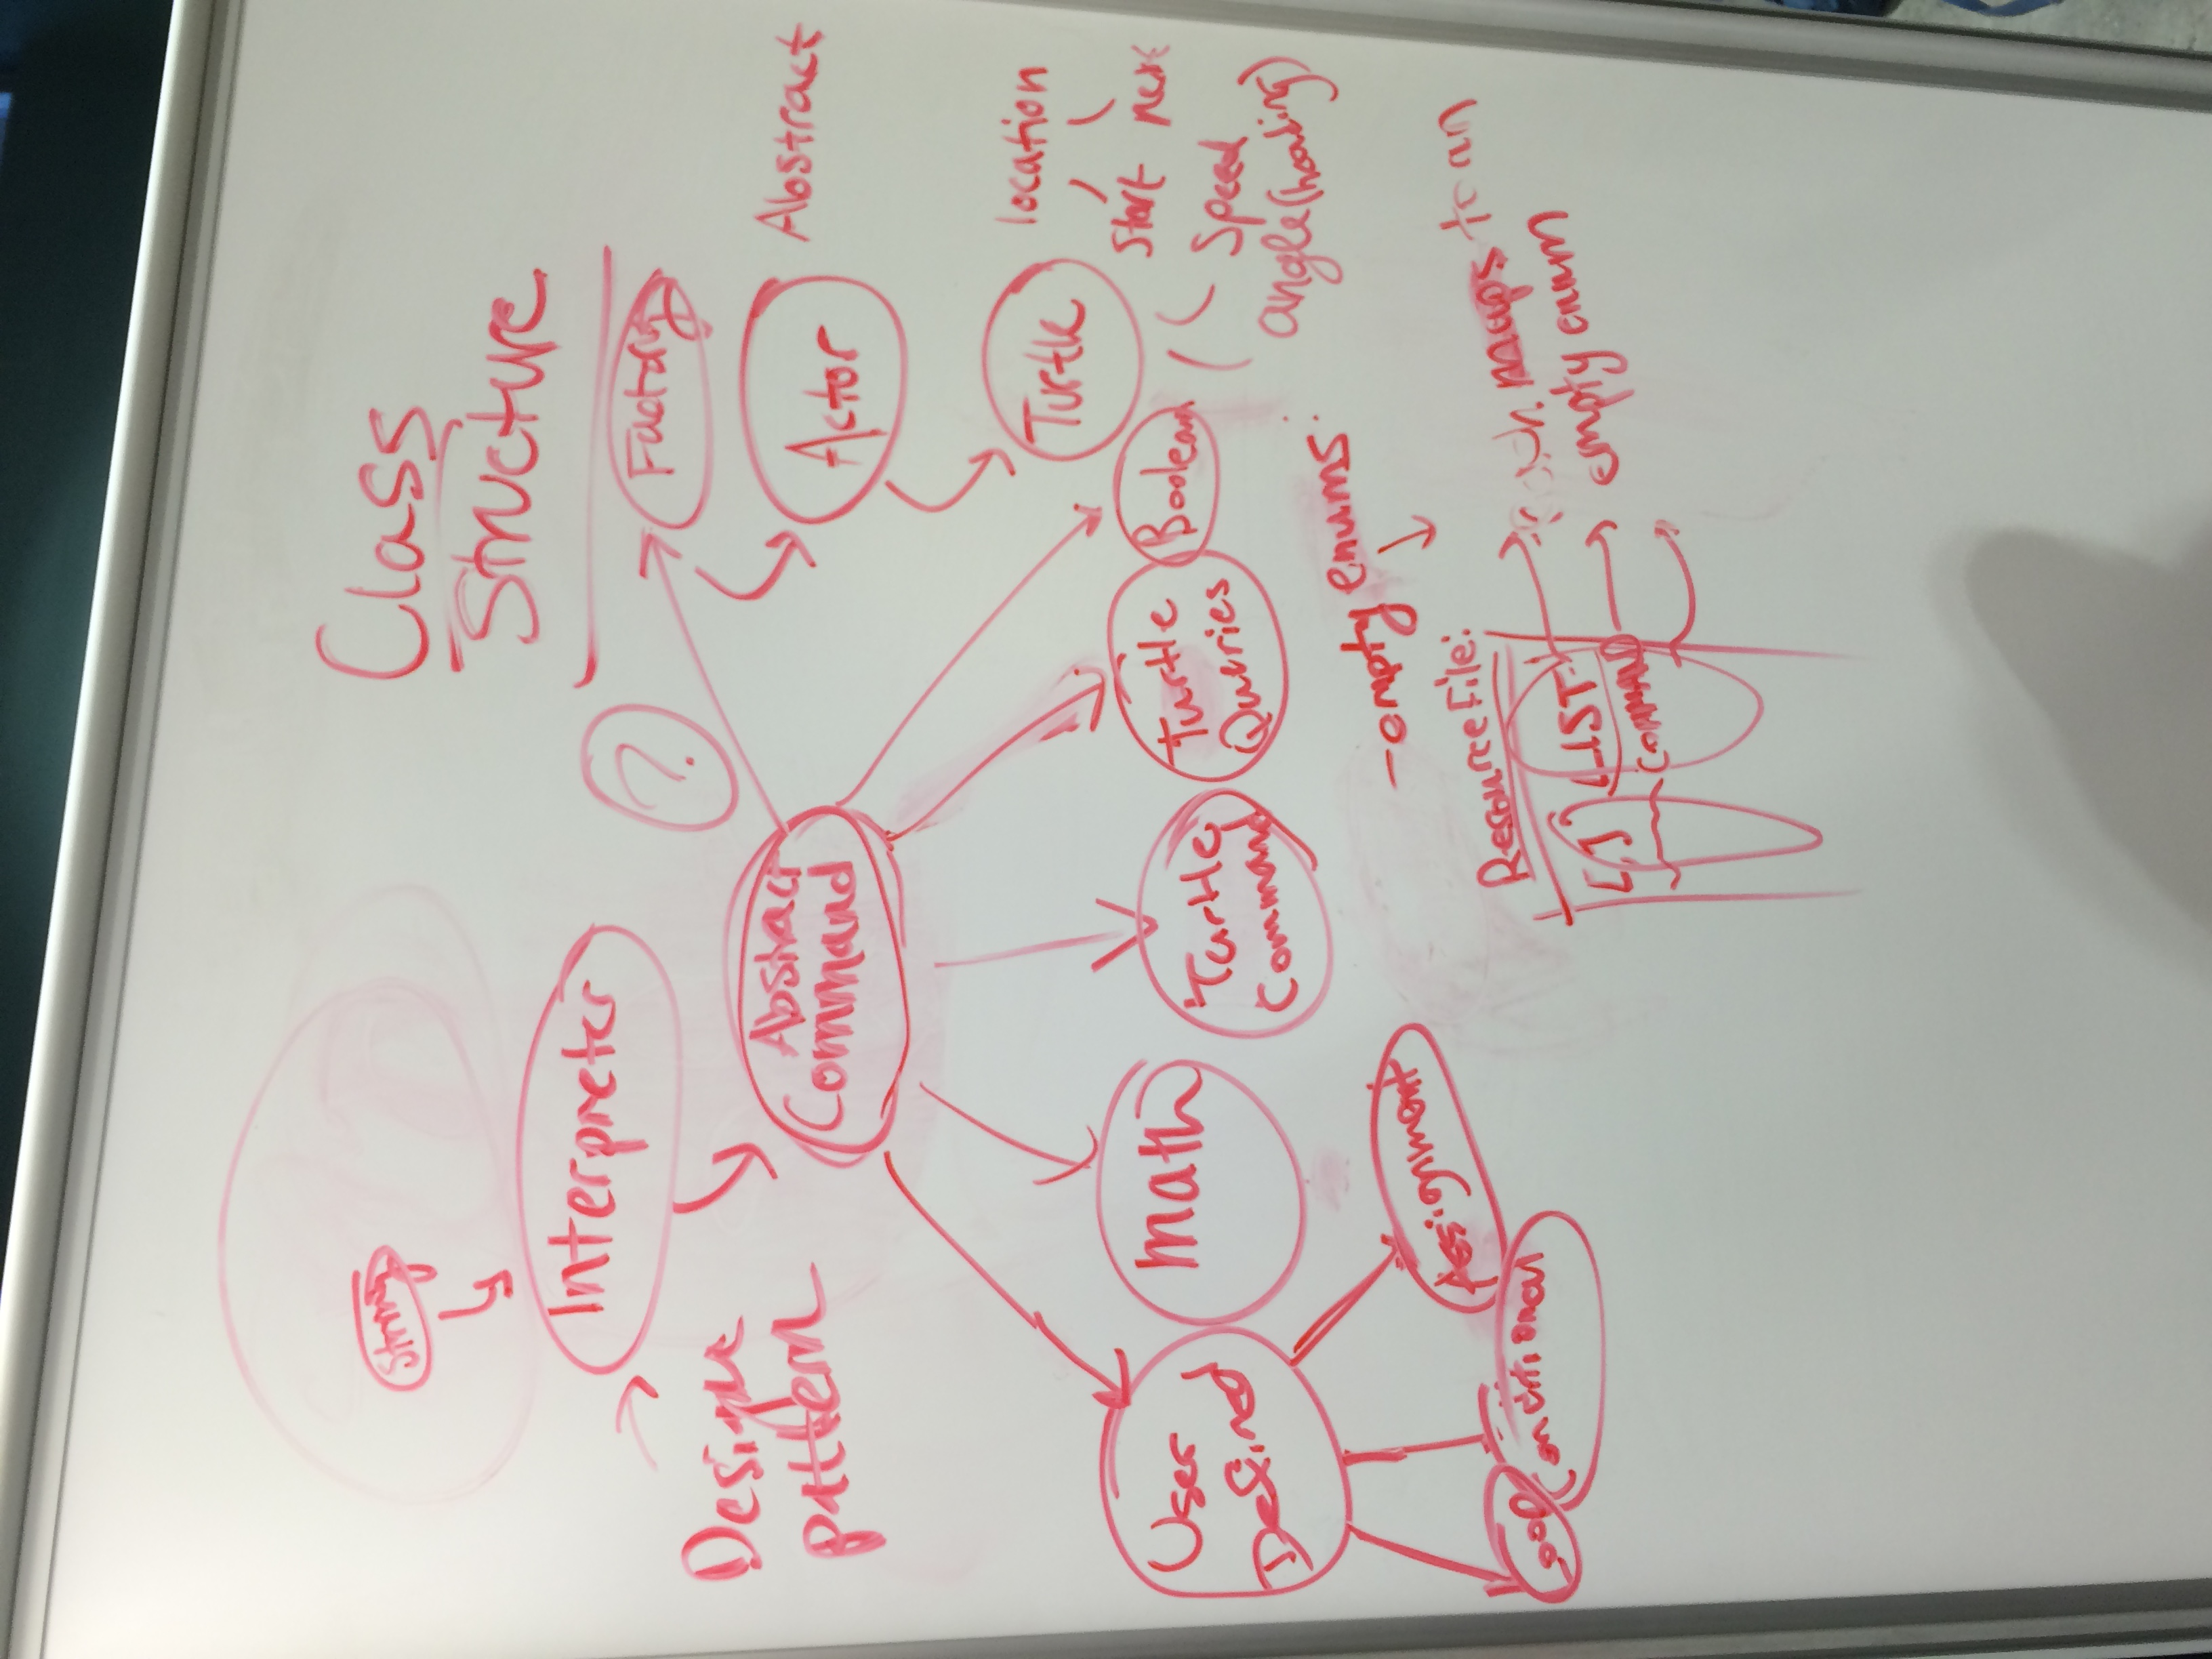 Class
Structure
String
Interpreter
?
Factory
Design
pattern
Abstract
Command
Actor
Abstract
Turtle
location
start next
speed
angle (heading)
User
Defined
math
Turtle
Command
Turtle
Queries
Boolean
Loop
Conditional
Assignment
- empty enums:
Resource File:
[ ] LIST
COMMAND
each maps to an
empty enum